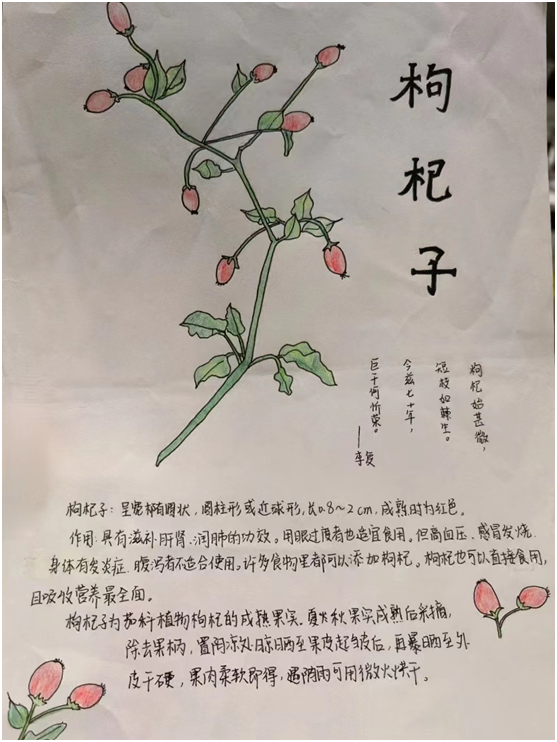 枸杞子
枸杞始甚微，
短枝如棘生。
今兹七十年，
巨干何忻荣。
——李复
枸杞子：呈类椭圆状，圆柱形或近球形，长0.8～2cm，成熟时为红色。
作用：具有滋补肝肾、润肺的功效。用眼过度者也适宜食用。但高血压、感冒发烧、
身体有炎症、腹泻者不适合使用。许多食物里都可以添加枸杞。枸杞也可以直接食用，
且吸收营养最全面。
枸杞子为茄科植物枸杞的成熟果实。夏秋果实成熟后采摘，
除去果柄，置阴凉处晾晒至果皮起皱后，再暴晒至外
皮干硬，果肉柔软即得，遇阴雨可用微火烘干。